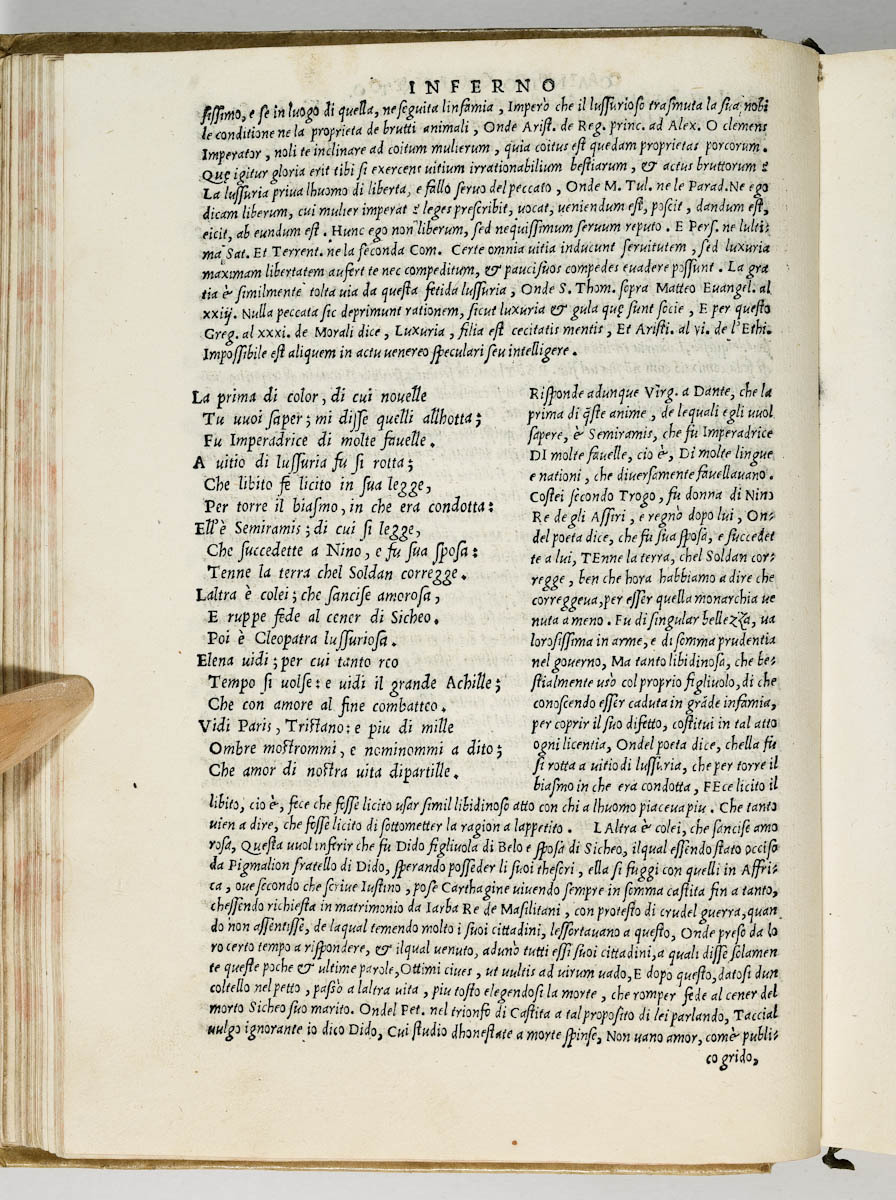 INFERNO
sissimo, e se in luogo di quella, ne seguita linfamia, Imperò che il lussurioso trasmuta la sua nobi
le conditione ne la proprieta de brutti animali, Onde Arist. de Reg. princ. ad Alex. O clemens
Imperator, noli te inclinare ad coitum mulierum, quia coitus est quedam proprietas porcorum.
Quę igitur gloria erit tibi si exercens uitium irrationabilium bestiarum, & actus bruttorum?
La lussuria priua lhuomo di liberta, e fallo seruo del peccato, Onde M. Tul. ne le Parad. Ne ego
dicam liberum, cui mulier imperat? leges prescribit, uocat, ueniendum est, poscit, dandum est,
eicit, ab eundum est. Hunc ego non liberum, sed nequissimum seruum reputo. E Pers. ne lulti-
ma Sat. Et Terrent. ne la seconda Com. Certe omnia uitia inducunt seruitutem, sed luxuria
maximam libertatem aufert te nec compeditum, & pauci suos compedes euadere possunt. La gra
tia è similmente tolta uia da questa fetida lussuria, Onde S. Thom. sepra Matteo Euangel. al
xxiij. Nulla peccata sic deprimunt rationem, sicut luxuria & gula quę sunt socie, E per questo
Greg. al xxxi. de Morali dice, Luxuria, filia est cecitatis mentis, Et Aristi. al vi. de l'Ethi.
Impossibile est aliquem in actu uenereo speculari seu intelligere.
La prima di color, di cui nouelle
Tu uuoi saper; mi disse quelli allhotta;
Fu Imperadrice di molte fauelle.
A uitio di lussuria fu si rotta;
Che libito fè licito in sua legge,
Per torre il biasmo, in che era condotta:
Ell'è Semiramis; di cui si legge,
Che succedette a Nino, e fu sua sposa:
Tenne la terra chel Soldan corregge.
Laltra è colei; che sancise amorosa,
E ruppe fede al cener di Sicheo.
Poi è Cleopatra lussuriosa.
Elena uidi; per cui tanto reo
Tempo si uolse: e uidi il grande Achille;
Che con amore al fine combatteo.
Vidi Paris, Tristano: e piu di mille
Ombre mostrommi, e nominommi a dito;
Che amor di nostra uita dipartille.
Risponde adunque Virg. a Dante, che la
prima di q̃ste anime, de lequali egli uuol
sapere, è Semiramis, che fu Imperadrice
DI molte fauelle, cio è, Di molte lingue
e nationi, che diuersamente fauellauano.
Costei secondo Trogo, fu donna di Nino
Re de gli Assiri, e regnò dopo lui, On-
del poeta dice, che fu sua sposa, e succedet
te a lui, TEnne la terra, chel Soldan cor-
regge, ben che hora habbiamo a dire che
correggeua, per esser quella monarchia ue
nuta a meno. Fu di singular bellezza, ua
lorosissima in arme, e di somma prudentia
nel gouerno, Ma tanto libidinosa, che be-
stialmente usò col proprio figliuolo, di che
conoscendo esser caduta in grãde infamia,
per coprir il suo difetto, costituì in tal atto
ogni licentia, Ondel poeta dice, chella fu
si rotta a uitio di lussuria, che per torre il
biasmo in che era condotta, FEce licito il
libito, cio è, fece che fosse licito usar simil libidinoso atto con chi a lhuomo piaceua piu. Che tanto
uien a dire, che fosse licito di sottometter la ragion a lappetito. LAltra è colei, che sancise amo
rosa, Questa uuol inferir che fu Dido figliuola di Belo e sposa di Sicheo, ilqual essendo stato occiso
da Pigmalion fratello di Dido, sperando posseder li suoi thesori, ella si fuggì con quelli in Affri-
ca, oue secondo che scriue Iustino, pose Carthagine uiuendo sempre in somma castita fin a tanto,
chessendo richiesta in matrimonio da Iarba Re de Masilitani, con protesto di crudel guerra, quan
do non assentisse, de laqual temendo molto i suoi cittadini, lessortauano a questo, Onde preso da lo
ro certo tempo a rispondere, & ilqual uenuto, adunò tutti essi suoi cittadini, a quali disse solamen
te queste poche & ultime parole, Ottimi ciues, ut uultis ad uirum uado, E dopo questo, datosi dun
coltello nel petto, passò a laltra uita, piu tosto elegendosi la morte, che romper fede al cener del
morto Sicheo suo marito. Ondel Pet. nel trionfo di Castita a tal proposito di lei parlando, Taccial
uulgo ignorante io dico Dido, Cui studio dhonestate a morte spinse, Non uano amor, com'è publi-
co grido,